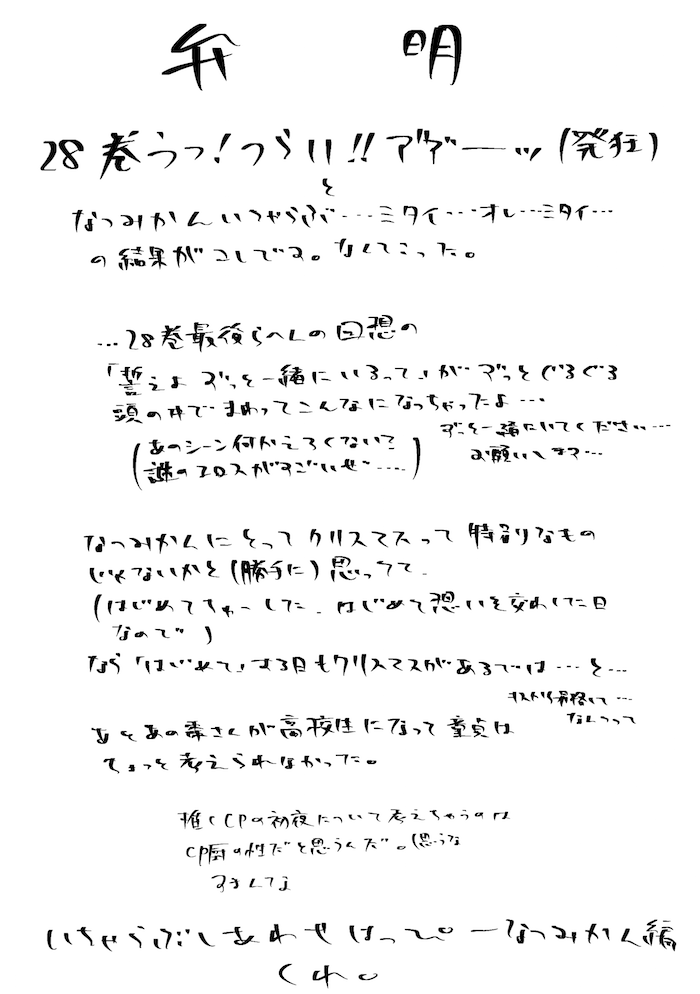 弁明
28巻うっ!つらい!!アアーッ(発狂)
と
なつみかんいちゃらぶ…ミタイ…オレ…ミタイ…
の結果がコレです。なんてこった。
…28巻最後らへんの回想の
「誓えよ ずっと一緒にいるって」がずっとぐるぐる
頭の中でまわってこんなになっちゃったよ…
ずっと一緒にいてください…
お願いします…
(あのシーン何かえろくない?
謎のエロスがすごいぜ……)
なつみかんにとってクリスマスって特別なもの
じゃないかと(勝手に)思ってて、
(はじめてちゅーした、はじめて想いを交わした日
なので)
なら「はじめて」する日もクリスマスがあるでは…と…
昇格して…
なんつって
あとあの棗さんが高校生になって童貞は
ちょっと考えられなかった。
推しCPの初夜について考えちゃうのは
CP厨の性だと思うんだ。(思うな
すまんてな
いちゃらぶしあわせはっぴーなつみかん編
くれ。